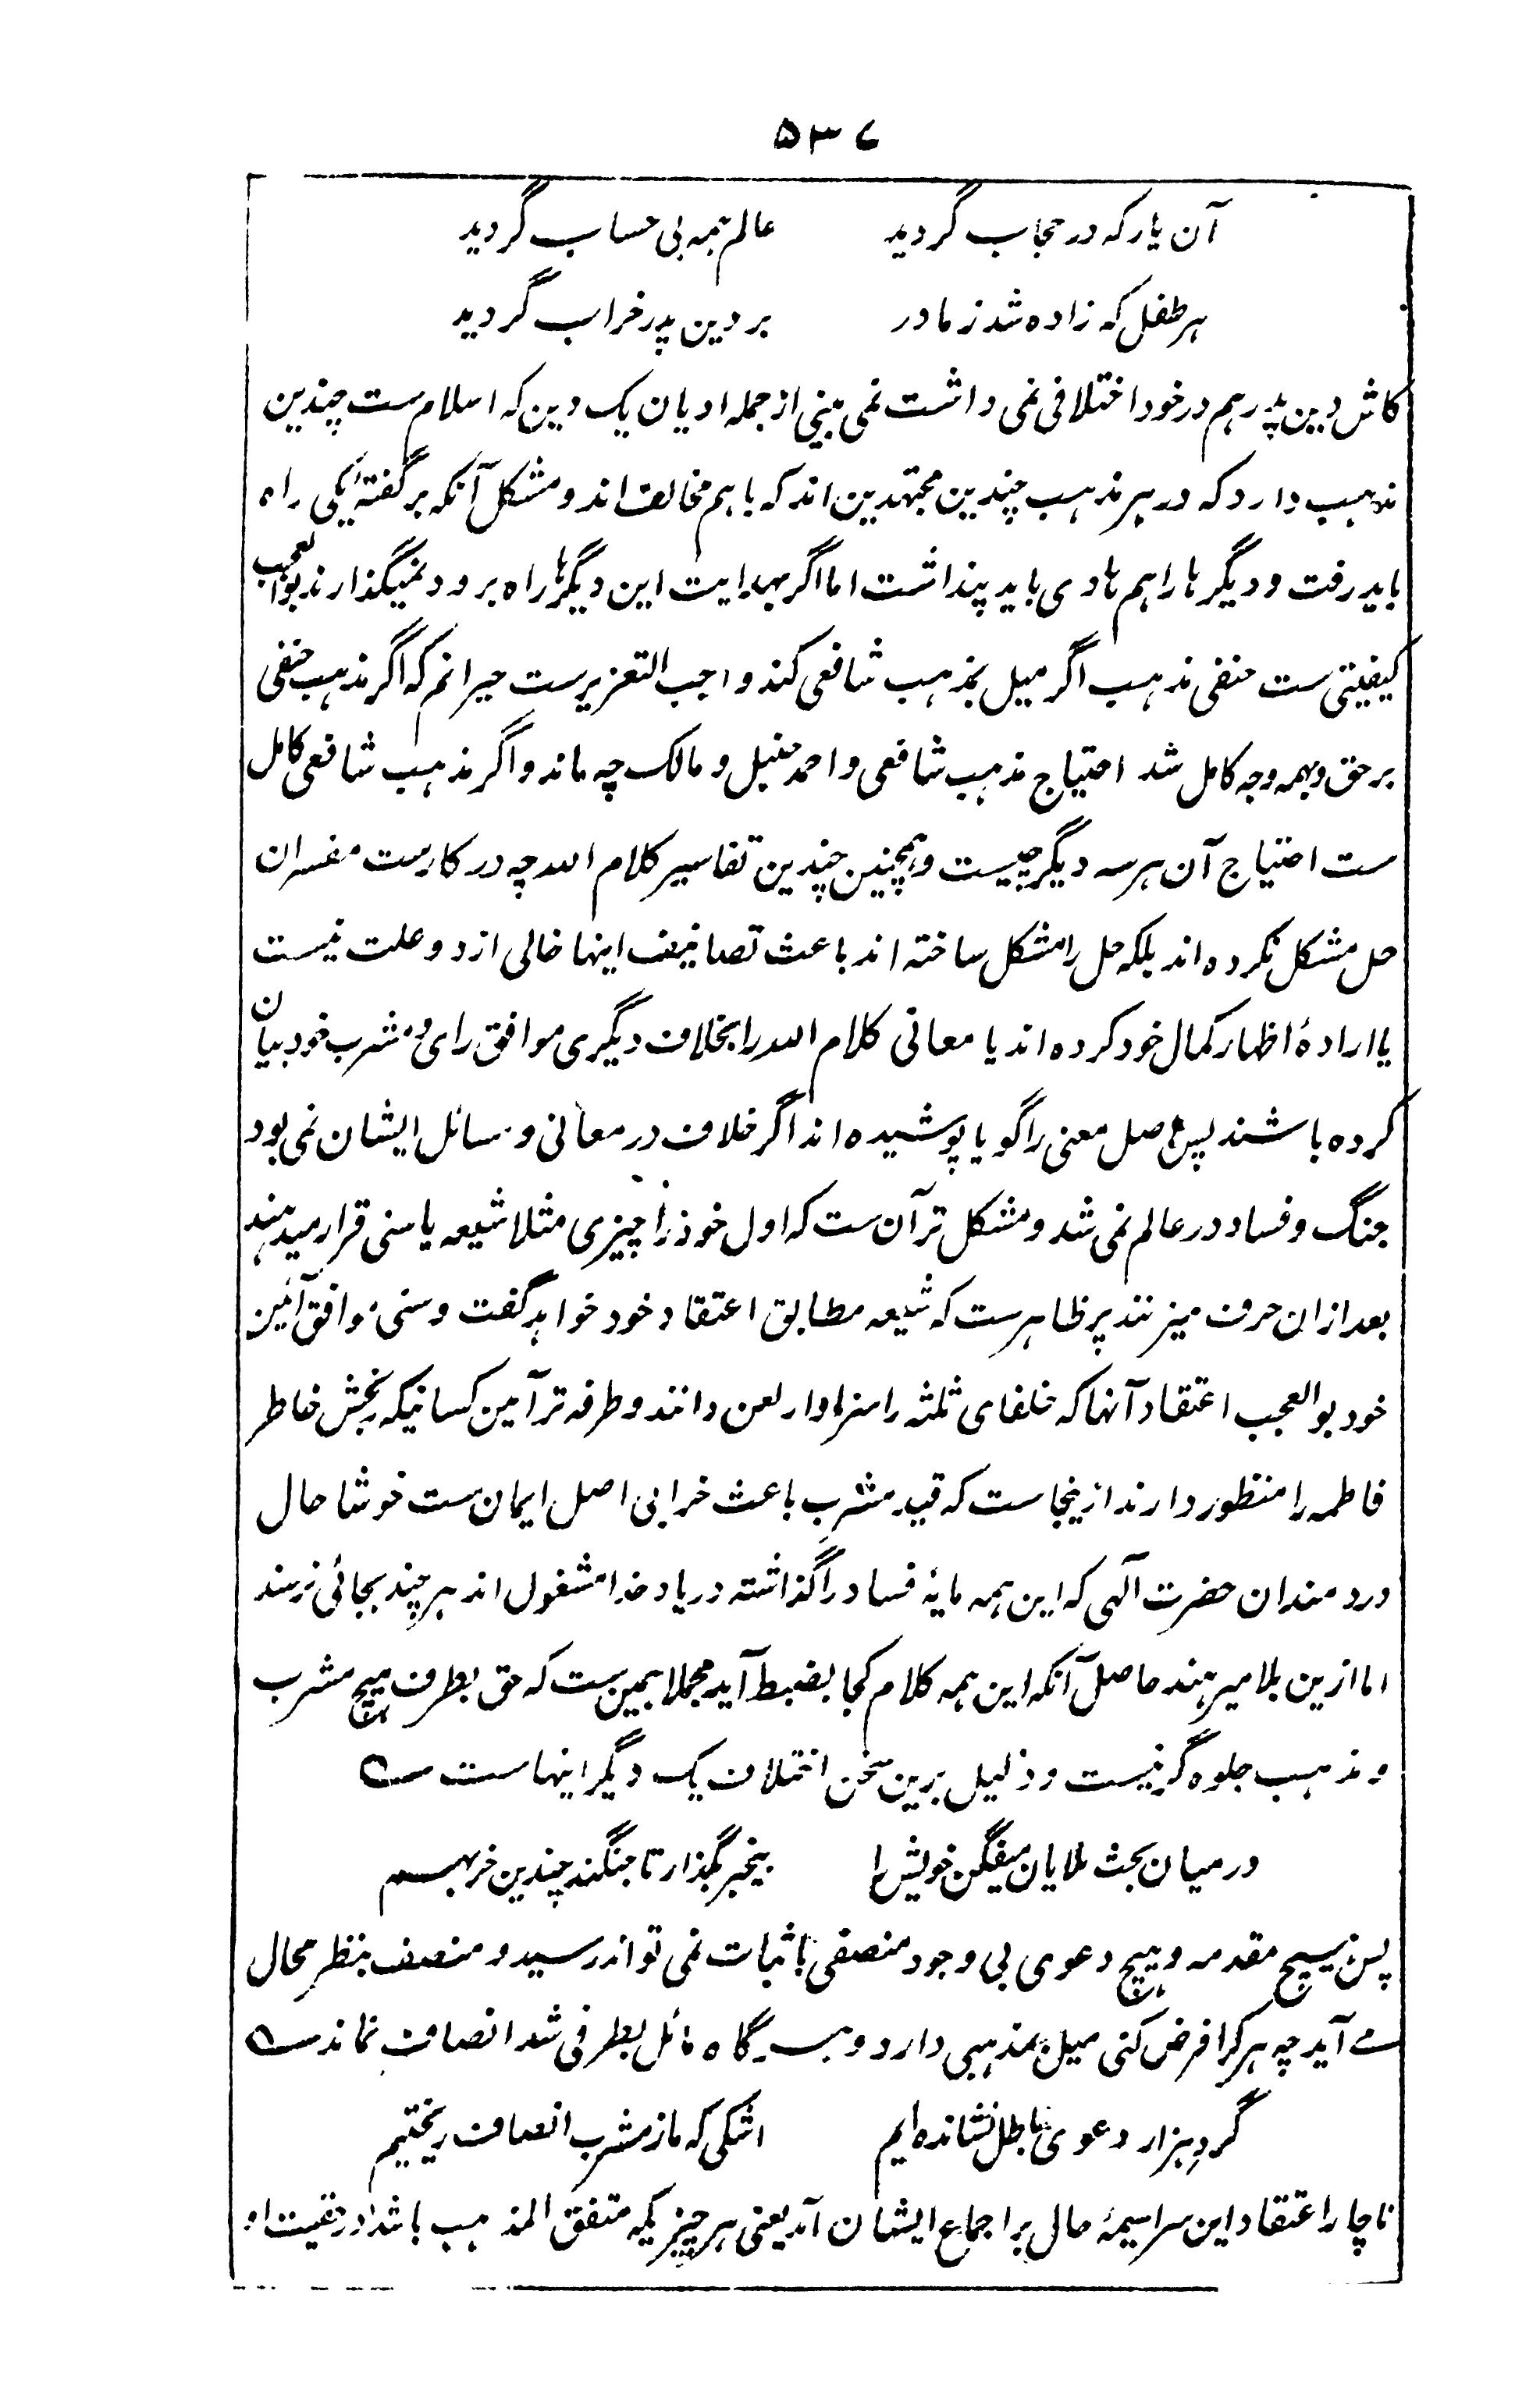 ۵۳۷
آن یار که در حجاب گردید عالم همه بی حساب گردید
هر طفل که زاده شد ز مادر بر دین پدر خراب گردید
کاش دین پدر هم در خود اختلافی نمی داشت نمی بینی از جمله ادیان یک دین که اسلام ست چندین
مذهب دارد که در هر مذهب چندین مجتهدین اند که باهم مخالف اند و مشکل آنکه بر گفتهٔ یکی راه
باید رفت و دیگر ها را هم هادی باید پنداشت اما اگر بهدایت این دیگرها راه برود نمیگذارند بوالعجب
کیفیتی ست حنفی مذهب اگر میل بمذهب شافعی کند واجب التعزیرست حیرانم که اگر مذهب حنفی
برحق و بهمه وجه کامل شد احتیاج مذهب شافعی و احمد حنبل و مالک چه ماند و اگر مذهب شافعی کامل
ست احتیاج آن هرسه دیگر چیست و همچنین چندین تفاسیر کلام الله چه درکارست مفسران
حل مشکل نکرده اند بلکه حل را مشکل ساخته اند باعث تصانیف اینها خالی از دو علت نیست
یا ارادهٔ اظهار کمال خود کرده اند یا معانی کلام الله را بخلاف دیگری موافق رای و مشرب خود بیان
کرده باشند پس اصل معنی را گویا پوشیده اند اگر خلاف در معانی و مسائل ایشان نمی بود
جنگ و فساد در عالم نمی شد و مشکل تر آن ست که اول خود را چیزی مثلا شیعه یا سنی قرار میدهند
بعد ازان حرف میزنند پر ظاهرست که شیعه مطابق اعتقاد خود خواهد گفت و سنی موافق آئین
خود بوالعجب اعتقاد آنها که خلفای ثلثه را سزاوار لعن دانند و طرفه تر آئین کسانیکه رنجش خاطر
فاطمه را منظور دارند ازینجاست که قید مشرب باعث خرابی اصل ایمان ست خوشا حال
دردمندان حضرت الهی که این همه مایهٔ فساد را گذاشته در یاد خدا مشغول اند هر چند بجائی نرسند
اما ازین بلا میرهند حاصل آنکه این همه کلام کجا بضبط آید مجملا همین ست که حق بطرف هیچ مشرب
و مذهب جلوه گر نیست و دلیل برین سخن اختلاف یک دیگر اینهاست ــه
در میان بحث ملایان میفگن خویش را بیخبر بگذار تا جنگند چندین خر بهم
پس هیچ مقدمه و هیچ دعوی بی وجود منصفی باثبات نمی تواند رسید و منصف بنظر محال
مے آید چه هر کرا فرض کنی میل بمذهبی دارد و هرگاه مائل بطرفی شد انصاف نماند ــه
گرد هزار دعوی باطل نشانده ایم اشکی که ما ز مشرب انصاف ریختیم
ناچار اعتقاد این سراسیمهٔ حال بر اجماع ایشان آمد یعنی هر چیزیکه متفق المذهب باشد در حقیت او